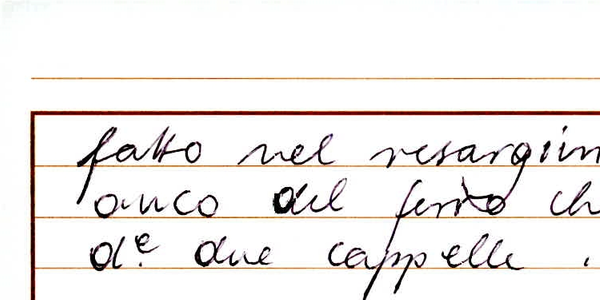 fatto nel resargim
anco del ferro ch
d.e due cappelle .